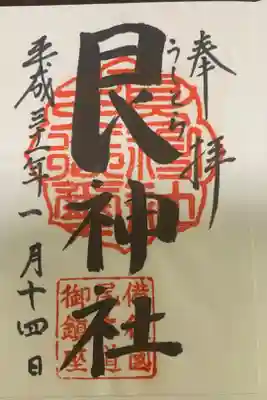 奉拝
うしとら
艮神社
平成三十一年一月十四日
備後國
尾道
御鎮座